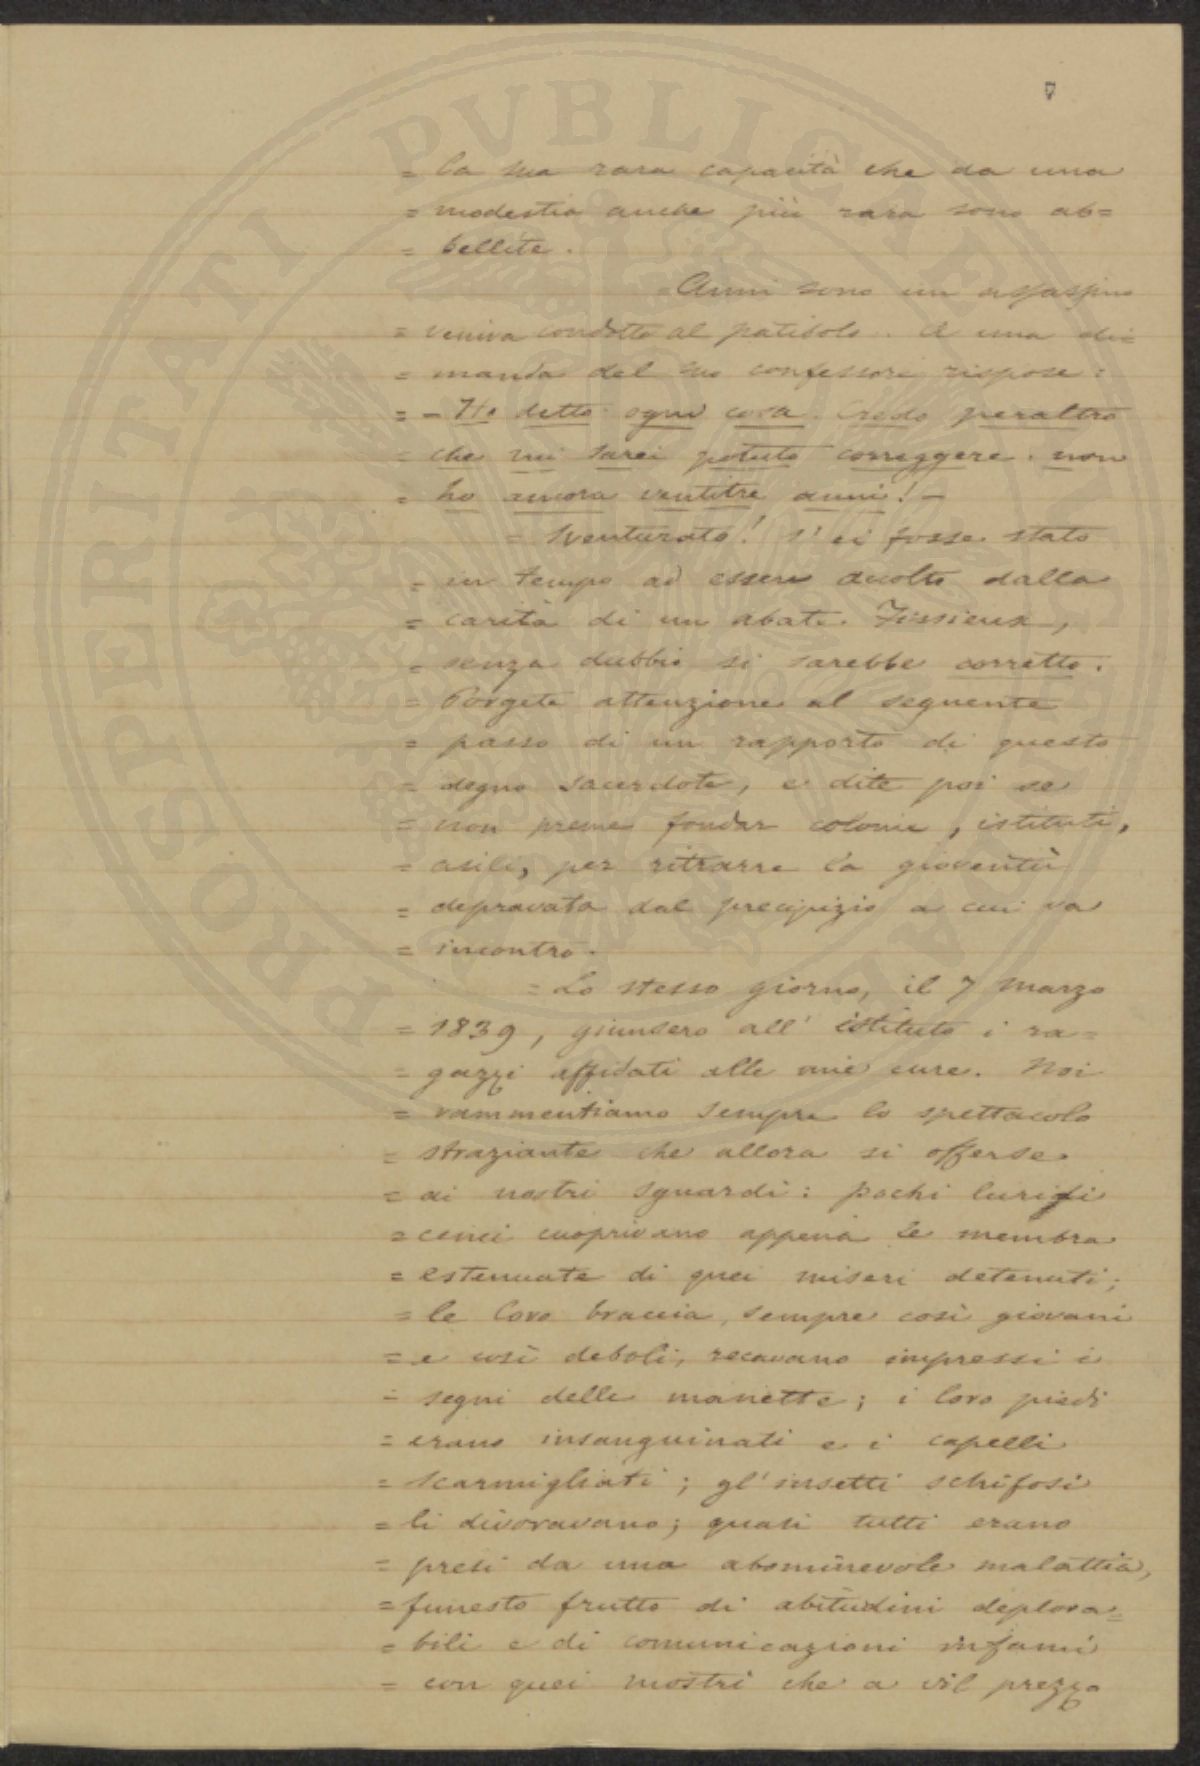 7
= la sua rara capacità che da una
= modestia anche più rara sono ab=
= bellite.
= Anni sono un
= veniva condotto al patibolo. A una di=
= manda del suo confessore rispose:
= - Ho detto ogni cosa. Credo peraltro
= che mi sarei potuto correggere. non
= ho ancora ventitre anni! -
= Sventurato! s'ei fosse stato
= in tempo ad essere accolto dalla
= carità di un abate Fissieux,
= senza dubbio si sarebbe corretto.
= Porgete attenzione al seguente
= passo di un rapporto di questo
= degno sacerdote, e dite poi se
= non preme fondar colonie, istituti,
= asili, per ritrarre la gioventù
= depravata dal precipizio a cui va
= incontro.
= Lo stesso giorno, il 7 Marzo
= 1839, giunsero all' istituto i ra=
= gazzi affidati alle mie cure. Noi
= rammentiamo sempre lo spettacolo
= straziante che allora si offerse
= ai nostri sguardi: pochi luridi
= cenci cuoprivano appena le membra
= estenuate di quei miseri detenuti;
= le loro braccia, sempre così giovani
= e così deboli, recavano impressi i
= segni delle manette; i loro piedi
= erano insanguinati e i capelli
= scarmigliati; gl'insetti schifosi
= li divoravano; quasi tutti erano
= presi da una abominevole malattia,
= funesto frutto di abitudini deplora=
= bili e di comunicazioni infami
= con quei mostri che a vil prezzo
PROSPERITATI PVBLICAE